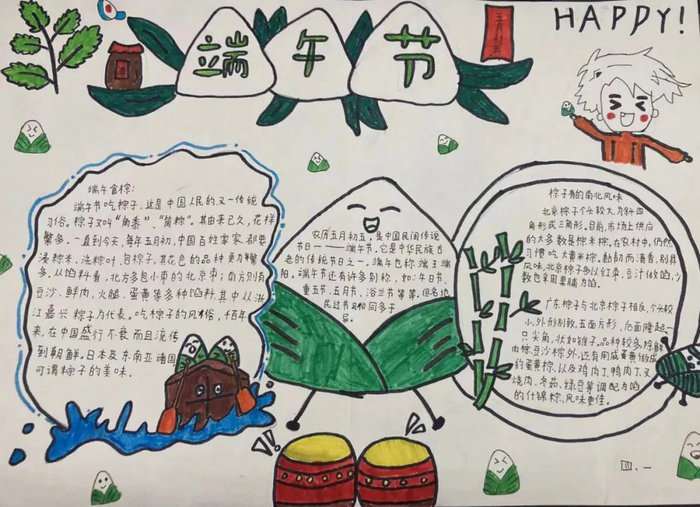 端午节
HAPPY!
端午食粽:
端午节吃粽子,这是中国人民的又一传统
习俗。粽子又叫“角黍”、“筒粽”。其由来已久,花样
繁多。一直到今天,每年五月初,中国百姓家家都要
浸糯米、洗粽叶、包粽子,其花色品种更为繁
多。从馅料看,北方多包小枣的北京枣粽;南方则有
豆沙、鲜肉、火腿、蛋黄等多种馅料,其中以浙
江嘉兴粽子为代表。吃粽子的风俗,千百年
来,在中国盛行不衰,而且流传
到朝鲜、日本及东南亚诸国
可谓粽子的美味。
农历五月初五,是中国民间传统
节日——端午节,它是中华民族古
老的传统节日之一。端午也称端五,
端阳。端午节还有许多别称,如:午日节、
重五节、五月节、浴兰节等等。
粽子有的南北风味
北京粽子个头较大,为斜四
角形或三角形。目前,市场上供应
的大多数是糯米粽。在农村中,仍然
习惯吃大黄米粽,黏韧而清香,别具
风味。北京粽子多以红枣、豆沙做馅,少
数也采用果脯为馅。
广东粽子与北京粽子相反,个头较
小,外形别致,正面方形,后面隆起一
只尖角,状如锥子。品种较多,除鲜
肉粽、豆沙粽外,还有用咸蛋黄做成
的蛋黄粽,以及鸡肉丁、鸭肉丁、叉
烧肉、冬菇、绿豆等调配为馅
的什锦粽,风味更佳。
四.一